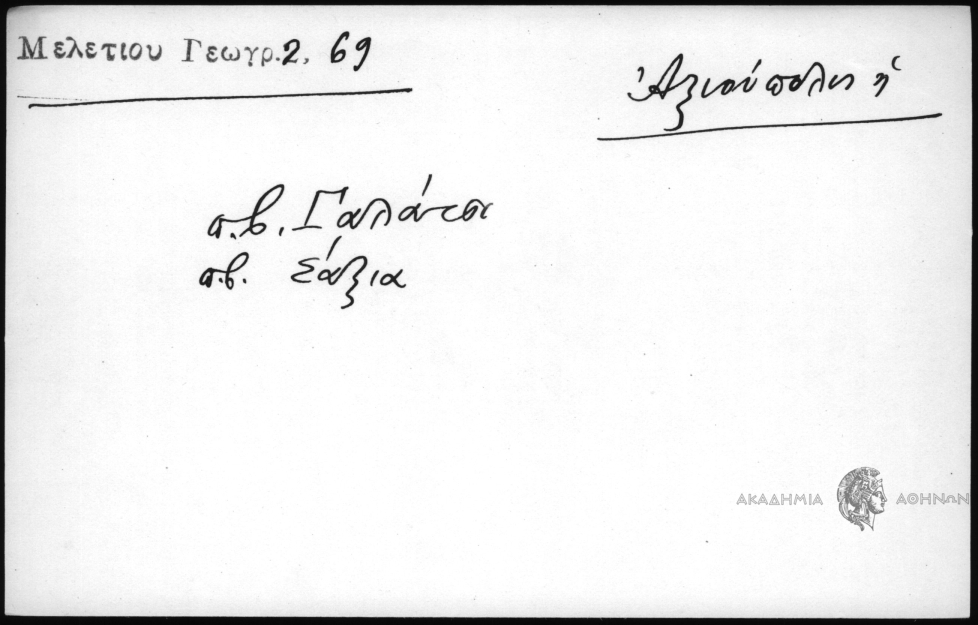 Μελετίου Γεωγρ. 2, 69
Ἀξιούπολις ἡ
π.β. Γαλάτσι
π.β. Σάξια
ΑΚΑΔΗΜΙΑ ΑΘΗΝΩΝ